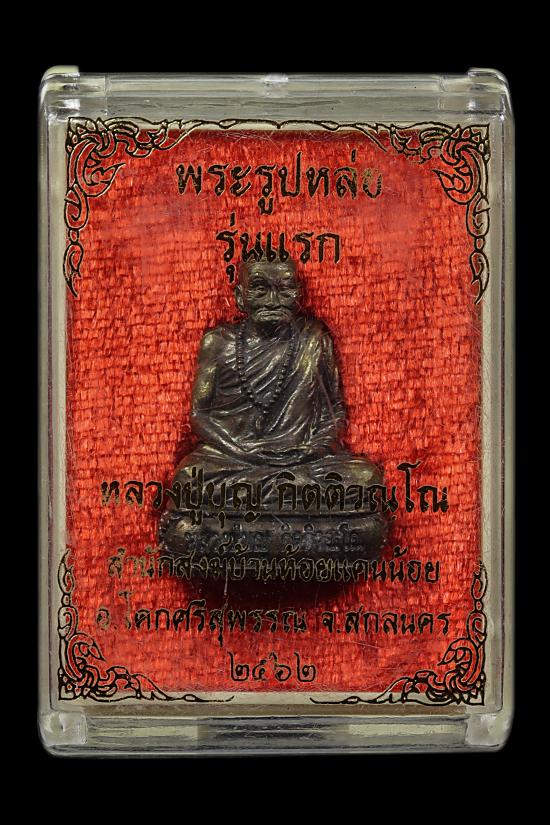 พระรูปหล่อ
รุ่นแรก
หลวงปู่บุญ กิตติวณฺโณ
สำนักสงฆ์บ้านห้อยแคนน้อย
อ.โคกศรีสุพรรณ จ.สกลนคร
๒๕๖๒